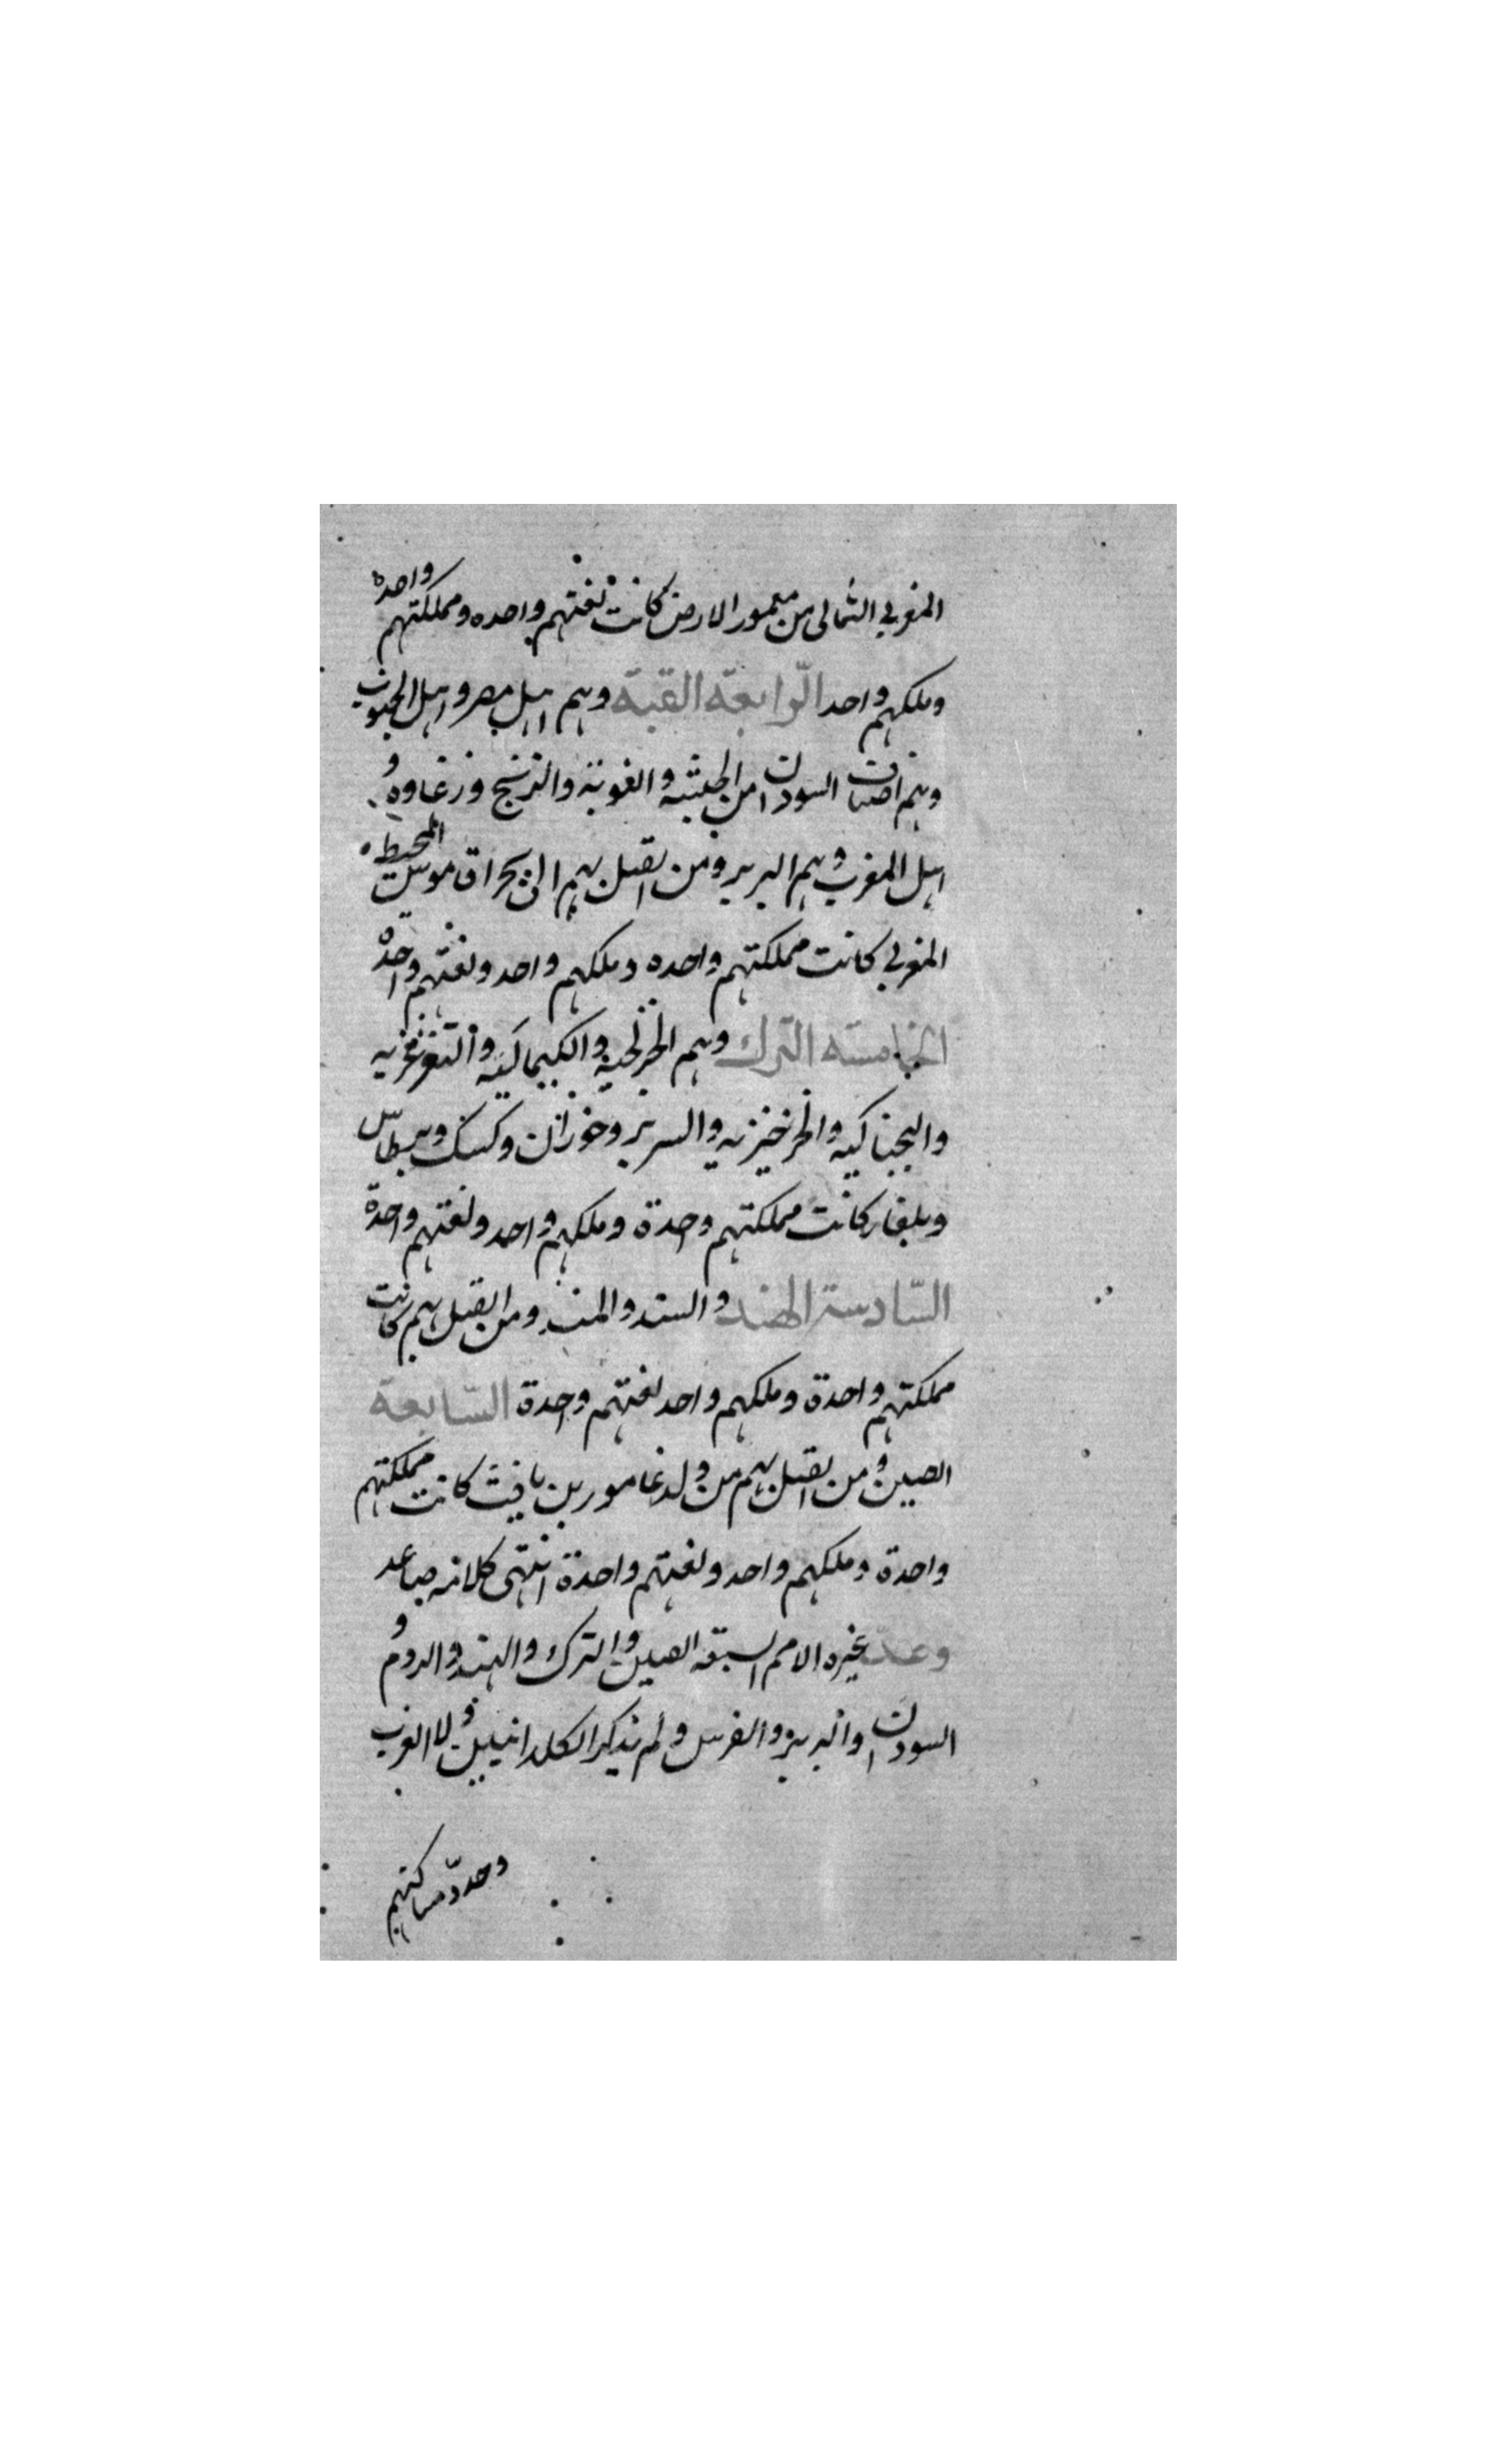 المغربي الشمالي من معمور الارض كانت لغتهم واحده ومملكتهم واحدة
وملكهم واحد الرّابعة القبة وهم اهل مصر واهل الجنوب
وهم اصناف السودان من الحبشه والنوبة والزنج وزغاوه و
اهل المغرب وهم البربر ومن اتصل بهم الى بحر اقـ ـوس المحيط
المغربي كانت مملكتهم واحده وملكهم واحد ولغتهم واحدة
الخامسة الترك وهم الخزلجية والكيماكية والتغزغزيه
والبجناكيه والخرخيزيه والسرير وخوزان وكسك وبرطاس
وبلغار كانت مملكتهم وحدة وملكهم واحد ولغتهم واحدة
السّادسة الهند والسند والمند ومن اتصل بهم كانت
مملكتهم واحدة وملكهم واحد لغتهم وحدة السّابعة
الصين ومن اتصل بهم من ولد عامور بن يافث كانت مملكتهم
واحدة وملكهم واحد ولغتهم واحدة انتهى كلامه صاعد
وعدّ غيره الامم السبعة الصين والترك والهند والروم و
السودان والبربر والفرس ولم يذكر الكلدانيين ولا العرب
وحدّد مساكنهم